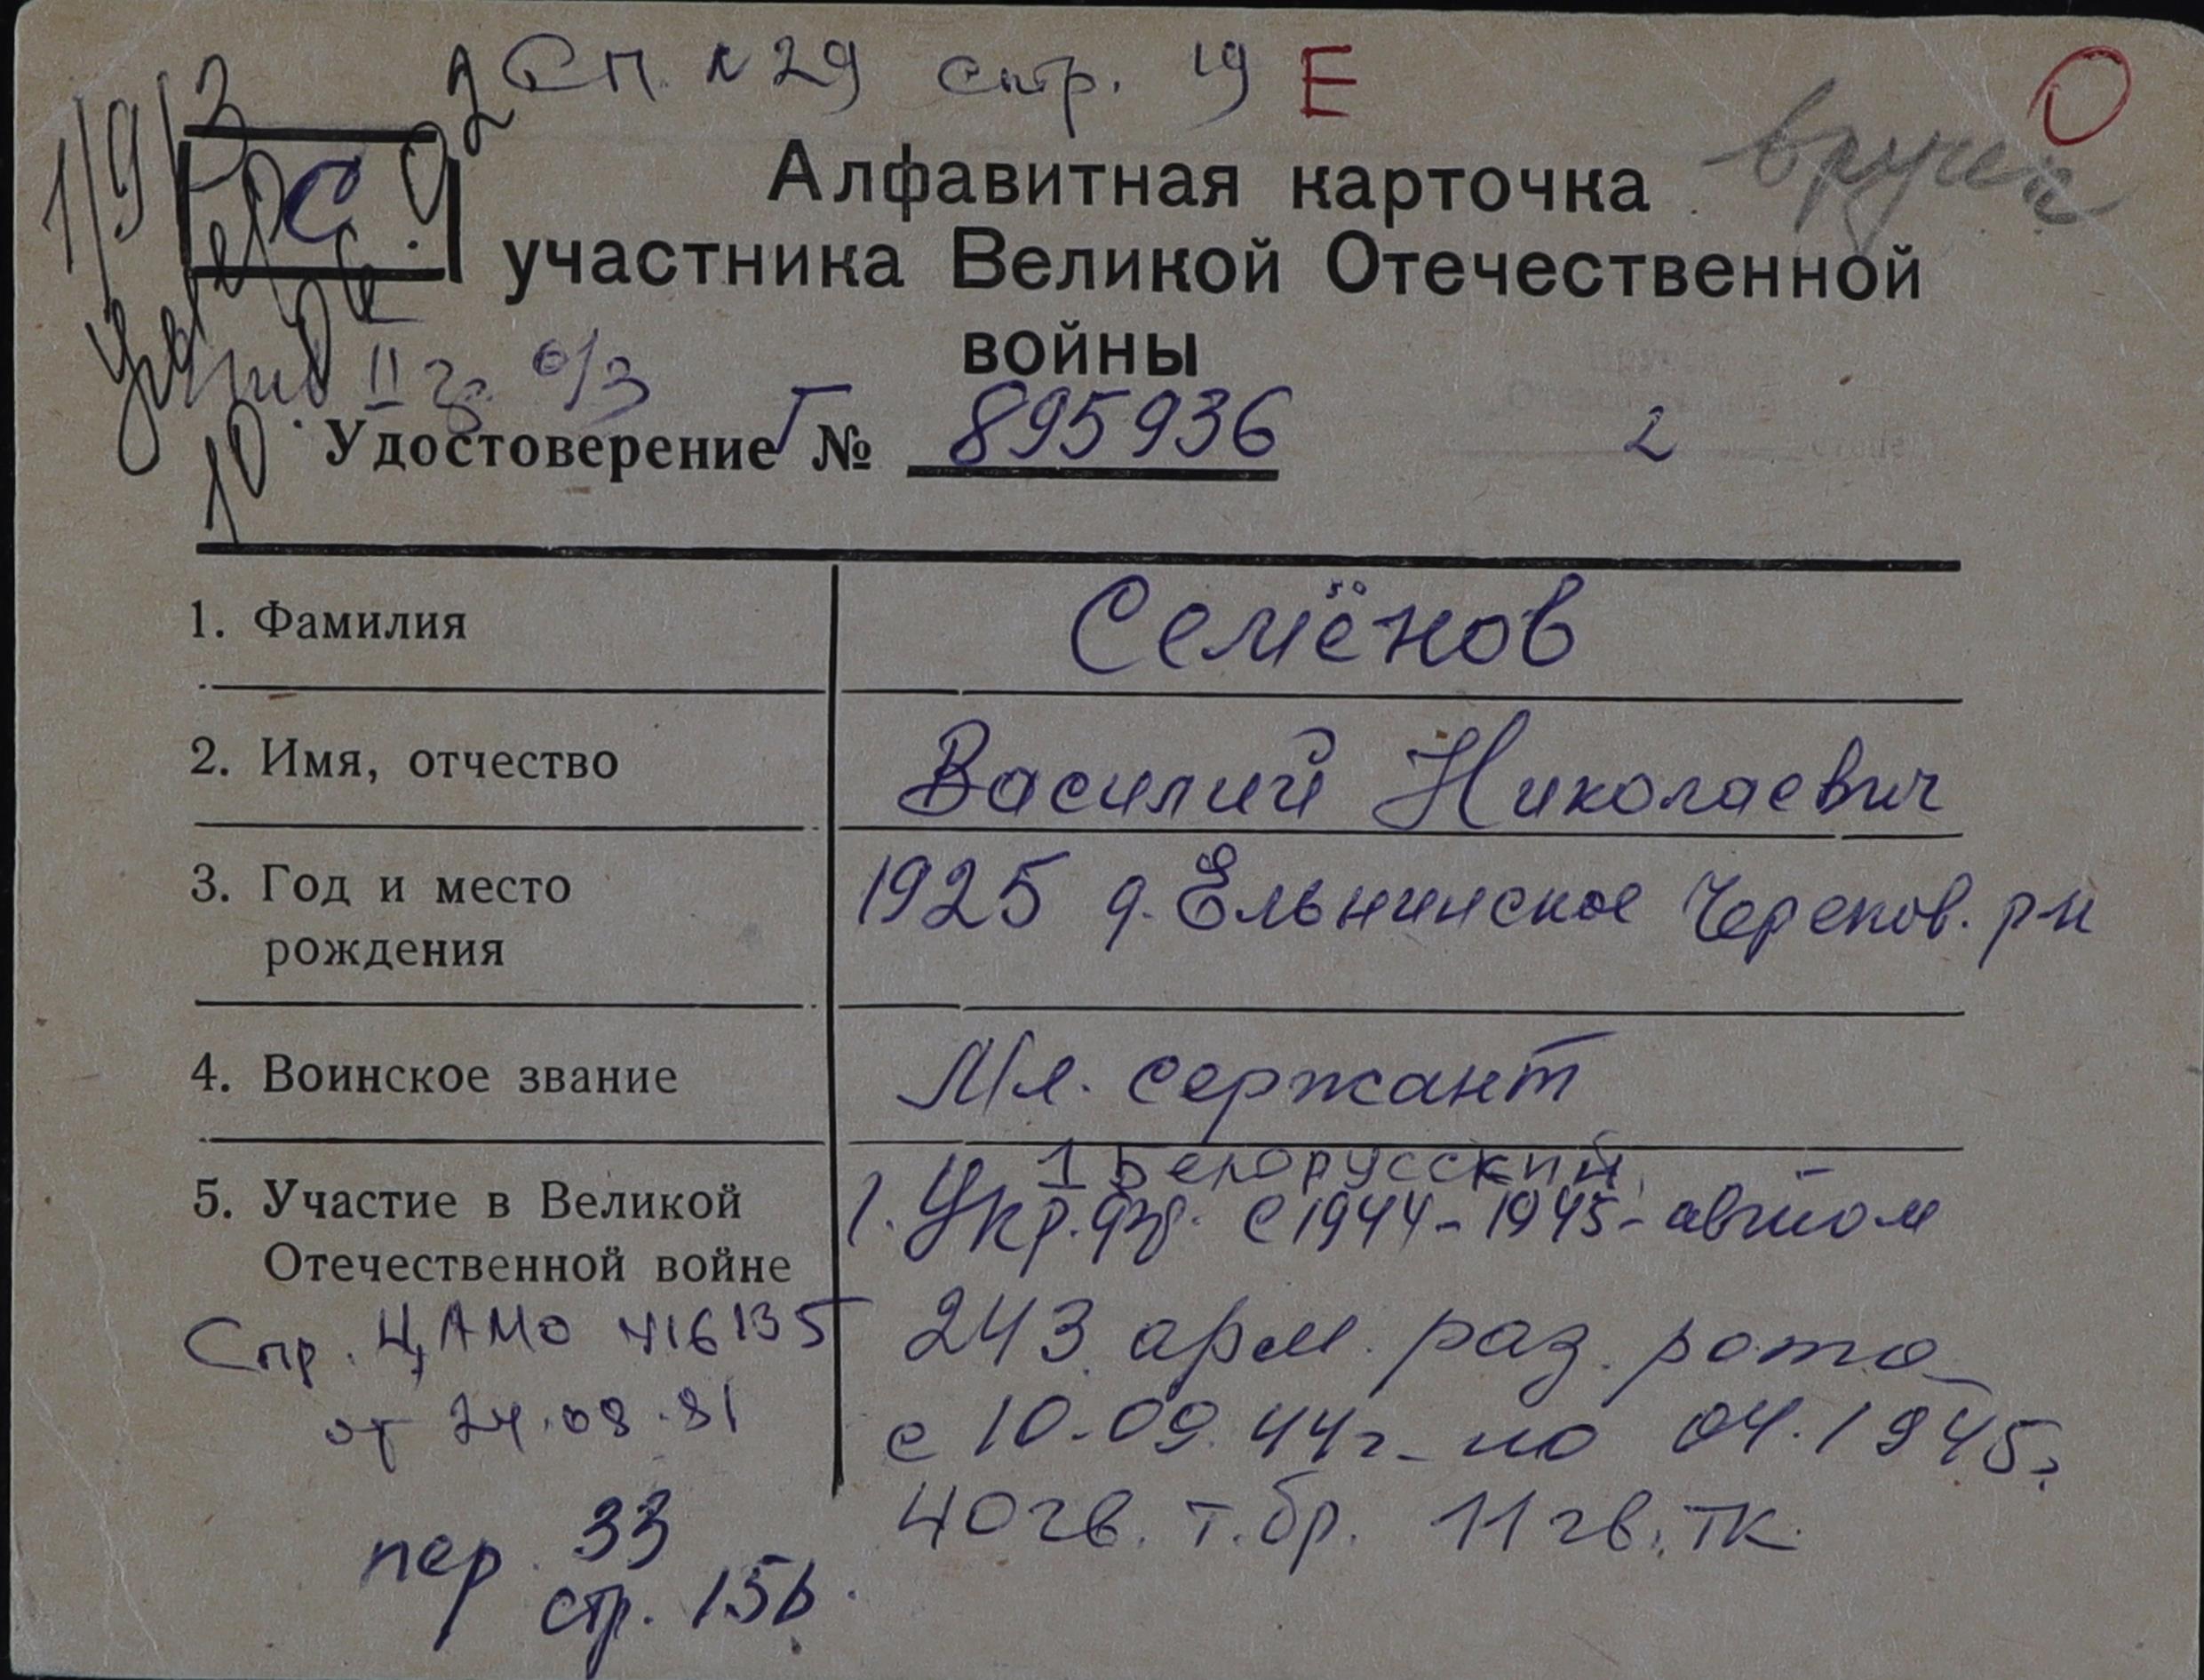 Сп. № 29 стр. 19 Е
О
С
Алфавитная карточка
участника Великой Отечественной
войны
II г. о/з
Удостоверение Г № 895936
2
10
1. Фамилия Семёнов
2. Имя, отчество Василий Николаевич
3. Год и место рождения 1925 д. Ельнинское Черепов. р-н
4. Воинское звание Мл. сержант
1 Белорусский
5. Участие в Великой 1. Укр. фр. с 1944 - 1945 - автом
Отечественной войне
Спр. ЦАМО 416135 243 арм. раз. рота
от 24.08.81 с 10.09.44г. по 04.1945г.
пер. 33 40 гв. т. бр. 11 гв. тк.
стр. 156.